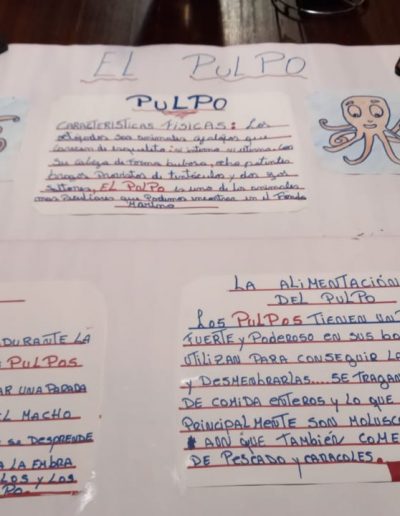 EL PULPO
PULPO
CARACTERÍSTICAS FÍSICAS: Los
son animales que
carecen de esqueleto
su cabeza de forma bulbosa, ocho potentes
brazos Provistos de tentáculos y dos ojos
EL PULPO es uno de los animales
mas Peculiares que Podemos encontrar en el Fondo
Marino
DURANTE LA
PULPOS
AR UNA PARADA
EL MACHO
SE DESPRENDE
A LA EMBRA
LOS Y LOS
PO.
LA ALIMENTACIÓN
DEL PULPO
LOS PULPOS TIENEN UN
FUERTE y PODEROSO EN SUS
UTILIZAN PARA CONSEGUIR
y DESMEMBRARLAS.... SE TRAGAN
DE COMIDA ENTEROS y LO QUE
PRINCIPALMENTE SON MOLUSC
AÚN QUE TAMBIÉN COME
DE PESCADO y CARACOLES.